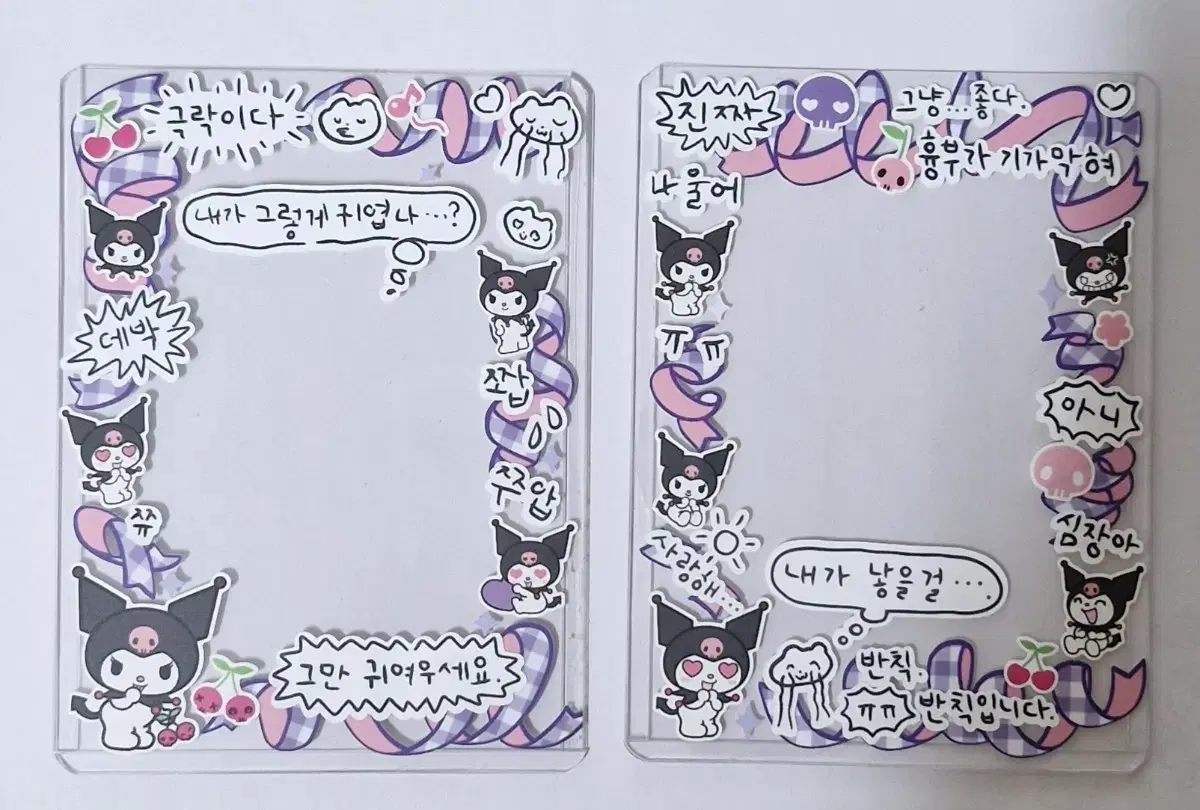 극락이다
내가 그렇게 귀엽나...?
데박
쪼압
쭈압
쮸
그만 귀여우세요.
진짜
그냥...좋다.
흉부가 기가막혀
나 울어
ㅠㅠ
아니
심장아
사랑해...
내가 낳을걸...
반칙.
ㅠㅠ
반칙입니다.